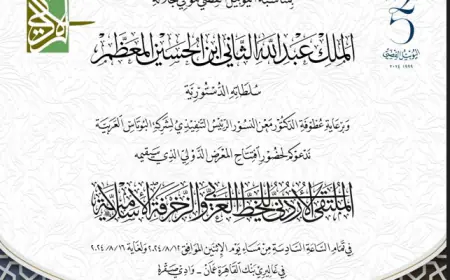 بمناسبة اليوبيل الفضي لتولي جلالة
الملك عبدالله الثاني ابن الحسين المعظم
سلطاته الدستورية
وبرعاية عطوفة الدكتور معن النسور الرئيس التنفيذي لشركة البوتاس العربية
ندعوكم لحضور افتتاح المعرض الدولي الذي سيقيمه
الملتقى الأردني للخط العربي والزخرفة الإسلامية
في تمام الساعة السادسة من مساء يوم الإثنين الموافق ٢٠٢٤/٨/١٢ ولغاية ٢٠٢٤/٨/١٦
في غاليري بنك القاهرة عمان - وادي صقرة
اليوبيل الفضي
١٩٩٩ ٢٠٢٤